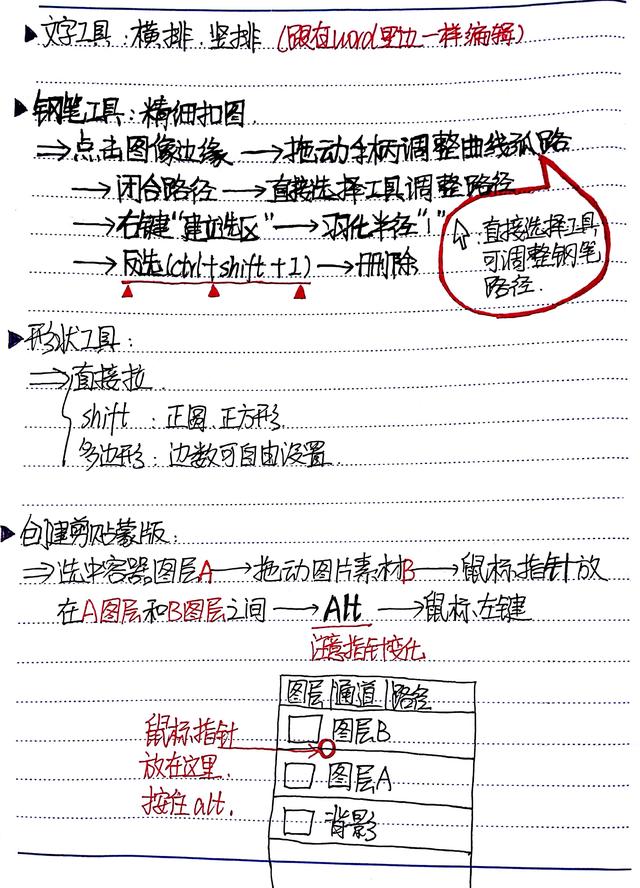 ▶文字工具:横排.竖排(跟在word里边一样编辑)
▶钢笔工具:精细扣图.
⇒点击图像边缘→拖动手柄调整曲线弧路
→闭合路径→直接选择工具调整路径
→右键“建立选区”→羽化半径“1”
→反选(ctrl+shift+I)→删除
直接选择工具
可调整钢笔
路径.
▶形状工具:
⇒直接拉.
shift:正圆.正方形.
多边形:边数可自由设置.
▶创建剪贴蒙版:
⇒选中容器图层A→拖动图片素材B→鼠标指针放
在A图层和B图层之间→Alt→鼠标左键
注意指针变化
图层|通道|路径
图层B
图层A
背影
鼠标指针
放在这里.
按住alt.